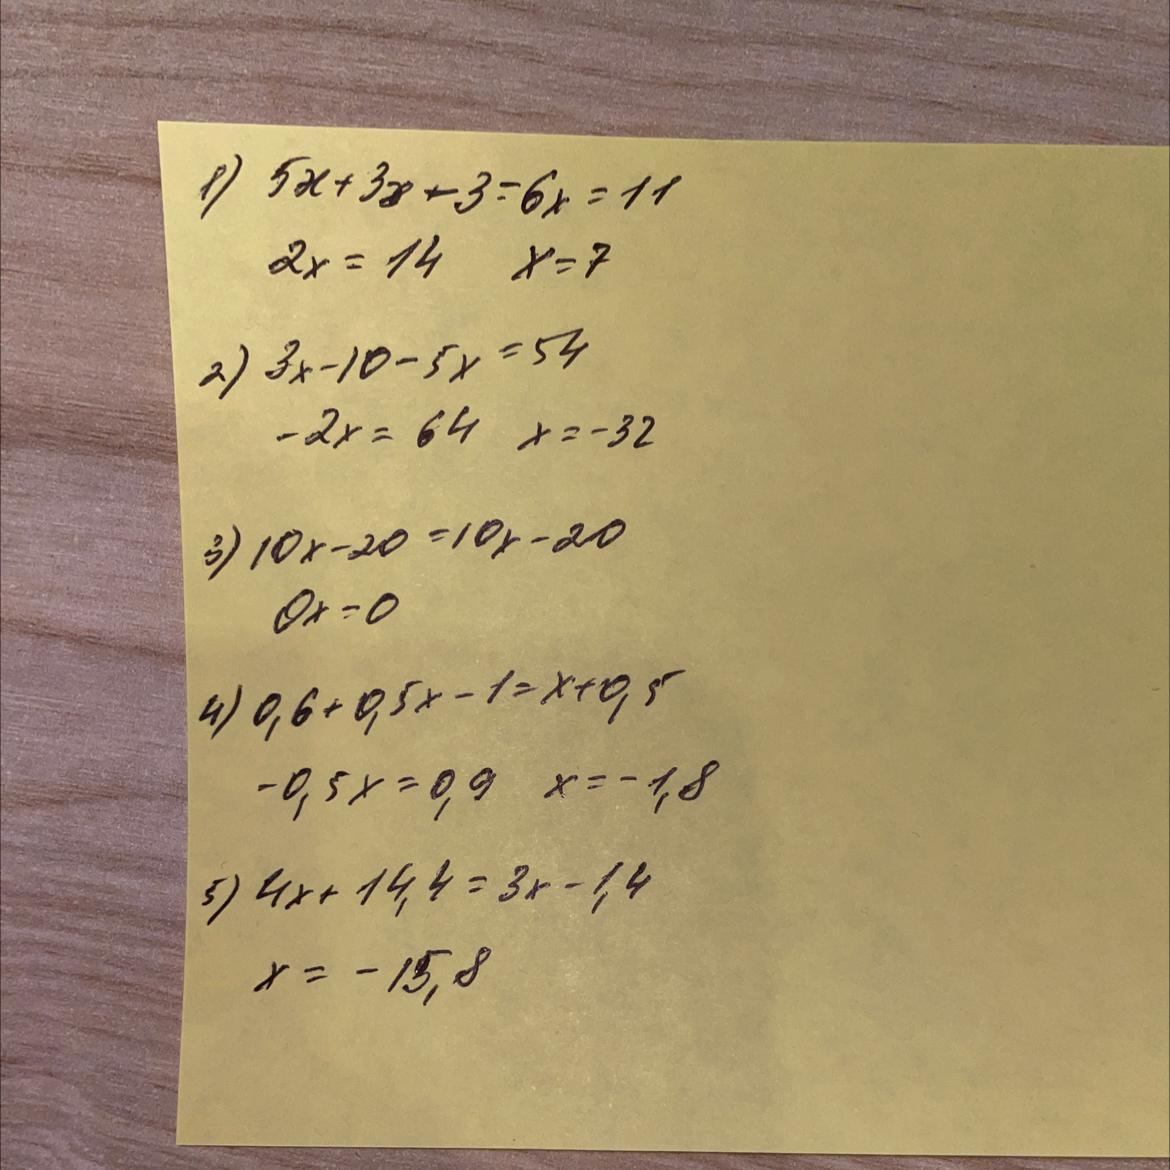 1) 5x+3x+3=6x=11
2x=14 x=7
2) 3x-10-5x=54
-2x=64 x=-32
3) 10x-20=10x-20
0x=0
4) 0,6+0,5x-1=x+0,5
-0,5x=0,9 x=-1,8
5) 4x+14,4=3x-1,4
x=-15,8